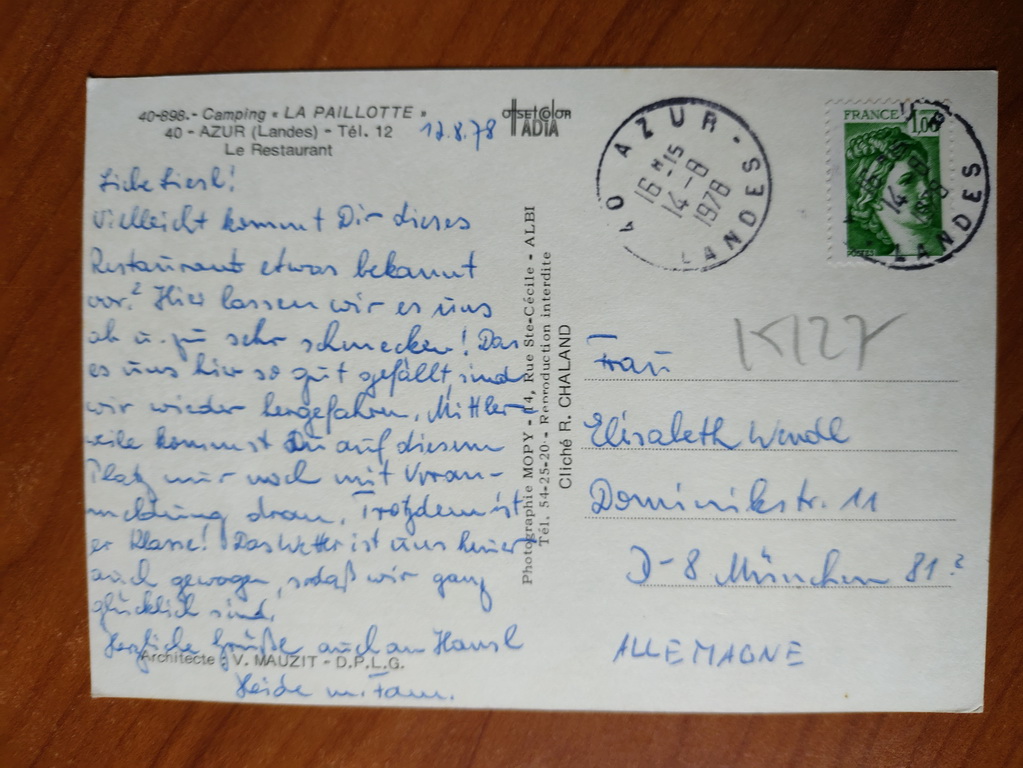 40-898.- Camping « LA PAILLOTTE »
40 - AZUR (Landes) - Tél. 12
Le Restaurant
12.8.78
OFFSET COLOR
TADIA
Liebe Liesl!
Vielleicht kommt Dir dieses
Restaurant etwas bekannt
vor? Hier lassen wir es uns
ab u. zu sehr schmecken! Das
es uns hier so gut gefällt, sind
wir wieder hergefahren. Mittler-
weile kommst Du auf diesem
Platz nur noch mit Voran-
meldung dran. Trotzdem ist
er Klasse! Das Wetter ist uns heuer
auch gewogen, sodaß wir ganz
glücklich sind.
Herzliche Grüße auch an Hansl
Heide m. Fam.
Architecte : V. MAUZIT - D.P.L.G.
Photographie MOPY - 14, Rue Ste-Cécile - ALBI
Tél. 54-25-20 - Reproduction interdite
Cliché R. CHALAND
40 AZUR - LANDES
16 H 15
14 - 8
1978
FRANCE 1,00
POSTES
14 - 8
LANDES
K127
Frau
Elisabeth Wendl
Dominikstr. 11
D-8 München 81?
ALLEMAGNE